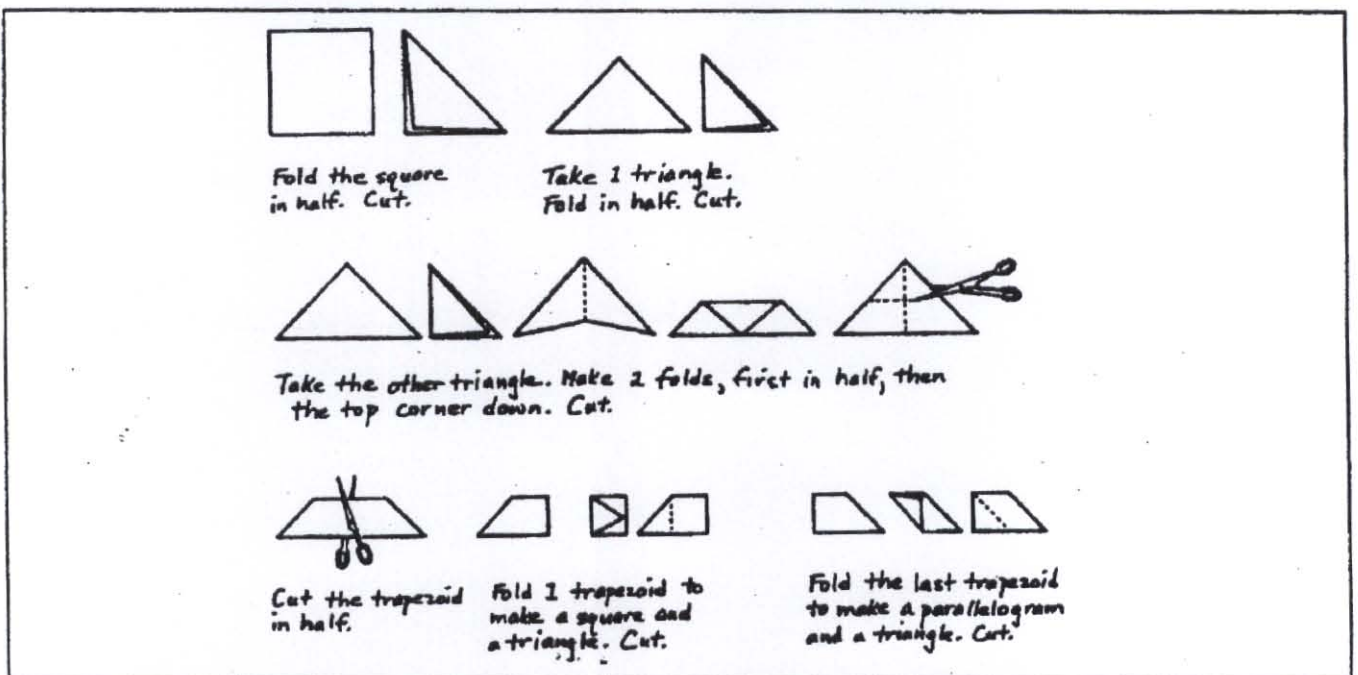 Fold the square
in half. Cut.
Take 1 triangle.
Fold in half. Cut.
Take the other triangle. Make 2 folds, first in half, then
the top corner down. Cut.
Cut the trapezoid
in half.
Fold 1 trapezoid to
make a square and
a triangle. Cut.
Fold the last trapezoid
to make a parallelogram
and a triangle. Cut.